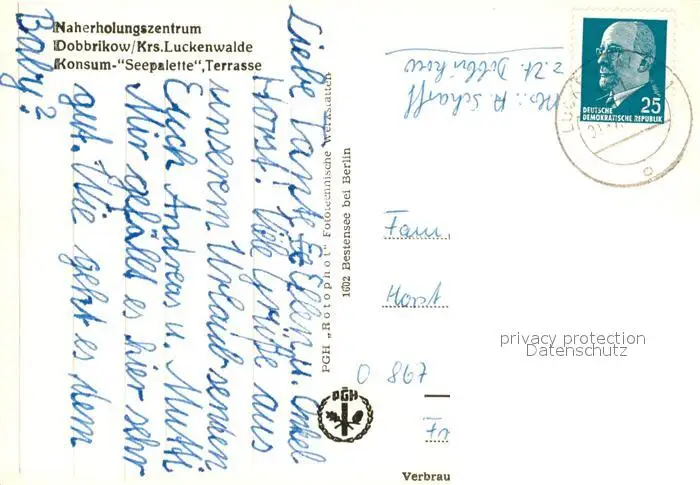 Naherholungszentrum
Dobbrikow/Krs.Luckenwalde
Konsum-"Seepalette",Terrasse
Liebe Tante Ellen u. Onkel
Horst! Viele Grüße aus
unserem Urlaub senden
Euch Andreas u. Mutti
Mir gefällt es hier sehr
gut. Wie geht es dem
Baby?
PGH „Rotophot" Fototechnische Werkstätten
1602 Bestensee bei Berlin
PGH
Abs.: A. Scharff
z. Zt. Dobbrikow
DEUTSCHE
DEMOKRATISCHE REPUBLIK
25
Fam.
Horst
privacy protection
Datenschutz
O 867
Verbrau